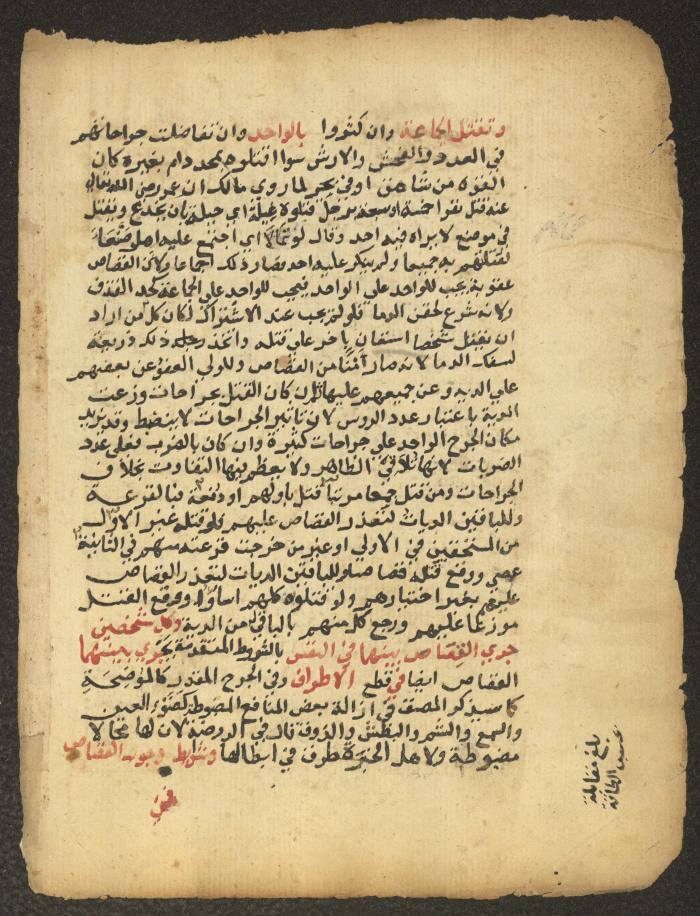 وتقتل الجماعة وان كثروا بالواحد وان تفاضلت جراحاتهم
في العدد والفحش والارش سوا اقتلوه بمحدد ام بغيره كان
القوه من شاهق او في بحر لما روي مالك ان عمر رضي الله تعالي
عنه قتل نفرا خمسة او سبعة برجل قتلوه غيلة اي حيلة بان يخدع ويقتل
في موضع لا يراه فيه احد وقال لو تمالا اي اجتمع عليه اهل صنعاء
لقتلتهم به جميعا ولم ينكر عليه احد فصار ذلك اجماعا ولان القصاص
عقوبة يجب للواحد علي الواحد فيجب للواحد علي الجماعة كحد القذف
ولانه شرع لحقن الدما فلو لم يجب عند الاشتراك لكان كل من اراد
ان يقتل شخصا استعان باخر علي قتله واتخذ ذلك ذريعة
لسفك الدما لانه صار آمنا من القصاص وللولي العفو عن بعضهم
علي الدية وعن جميعهم عليها ثم ان كان القتل بجراحات وزعت
الدية باعتبار عدد الروس لان تاثير الجراحات لا ينضبط وقد يزيد
مكان الجرح الواحد علي جراحات كثيرة وان كان بالضرب فعلي عدد
الضربات لانها تلاقي الظاهر ولا يعظم فيها التفاوت بخلاف
الجراحات ومن قتل جمعا مرتبا قتل باولهم او دفعة فبالقرعة
وللباقين الديات لتعذر القصاص عليهم فلو قتله غير الاول
من المستحقين في الاولي او غير من خرجت قرعته منهم في الثانية
عصي ووقع قتله قصاصا وللباقين الديات لتعذر القصاص
عليهم بغير اختيارهم ولو قتلوه كلهم اساوا ووقع القتل
موزعا عليهم ورجع كل منهم بالباقي من الدية وكل شخصين
جري القصاص بينهما في النفس بالشروط المتقدمة يجري بينهما
القصاص ايضا في قطع الاطراف وفي الجرح المقدر كالموضحة
كما سيذكر المصنف في ازالة بعض المنافع المضبوطة كضوء العين
والسمع والشم والبطش والذوق قال في الروضة لان لها محالا
مضبوطة ولاهل الخبرة طرق في ابطالها وشرايط وجوب القصاص
بلغ مقابلة
بحسب الطاقة